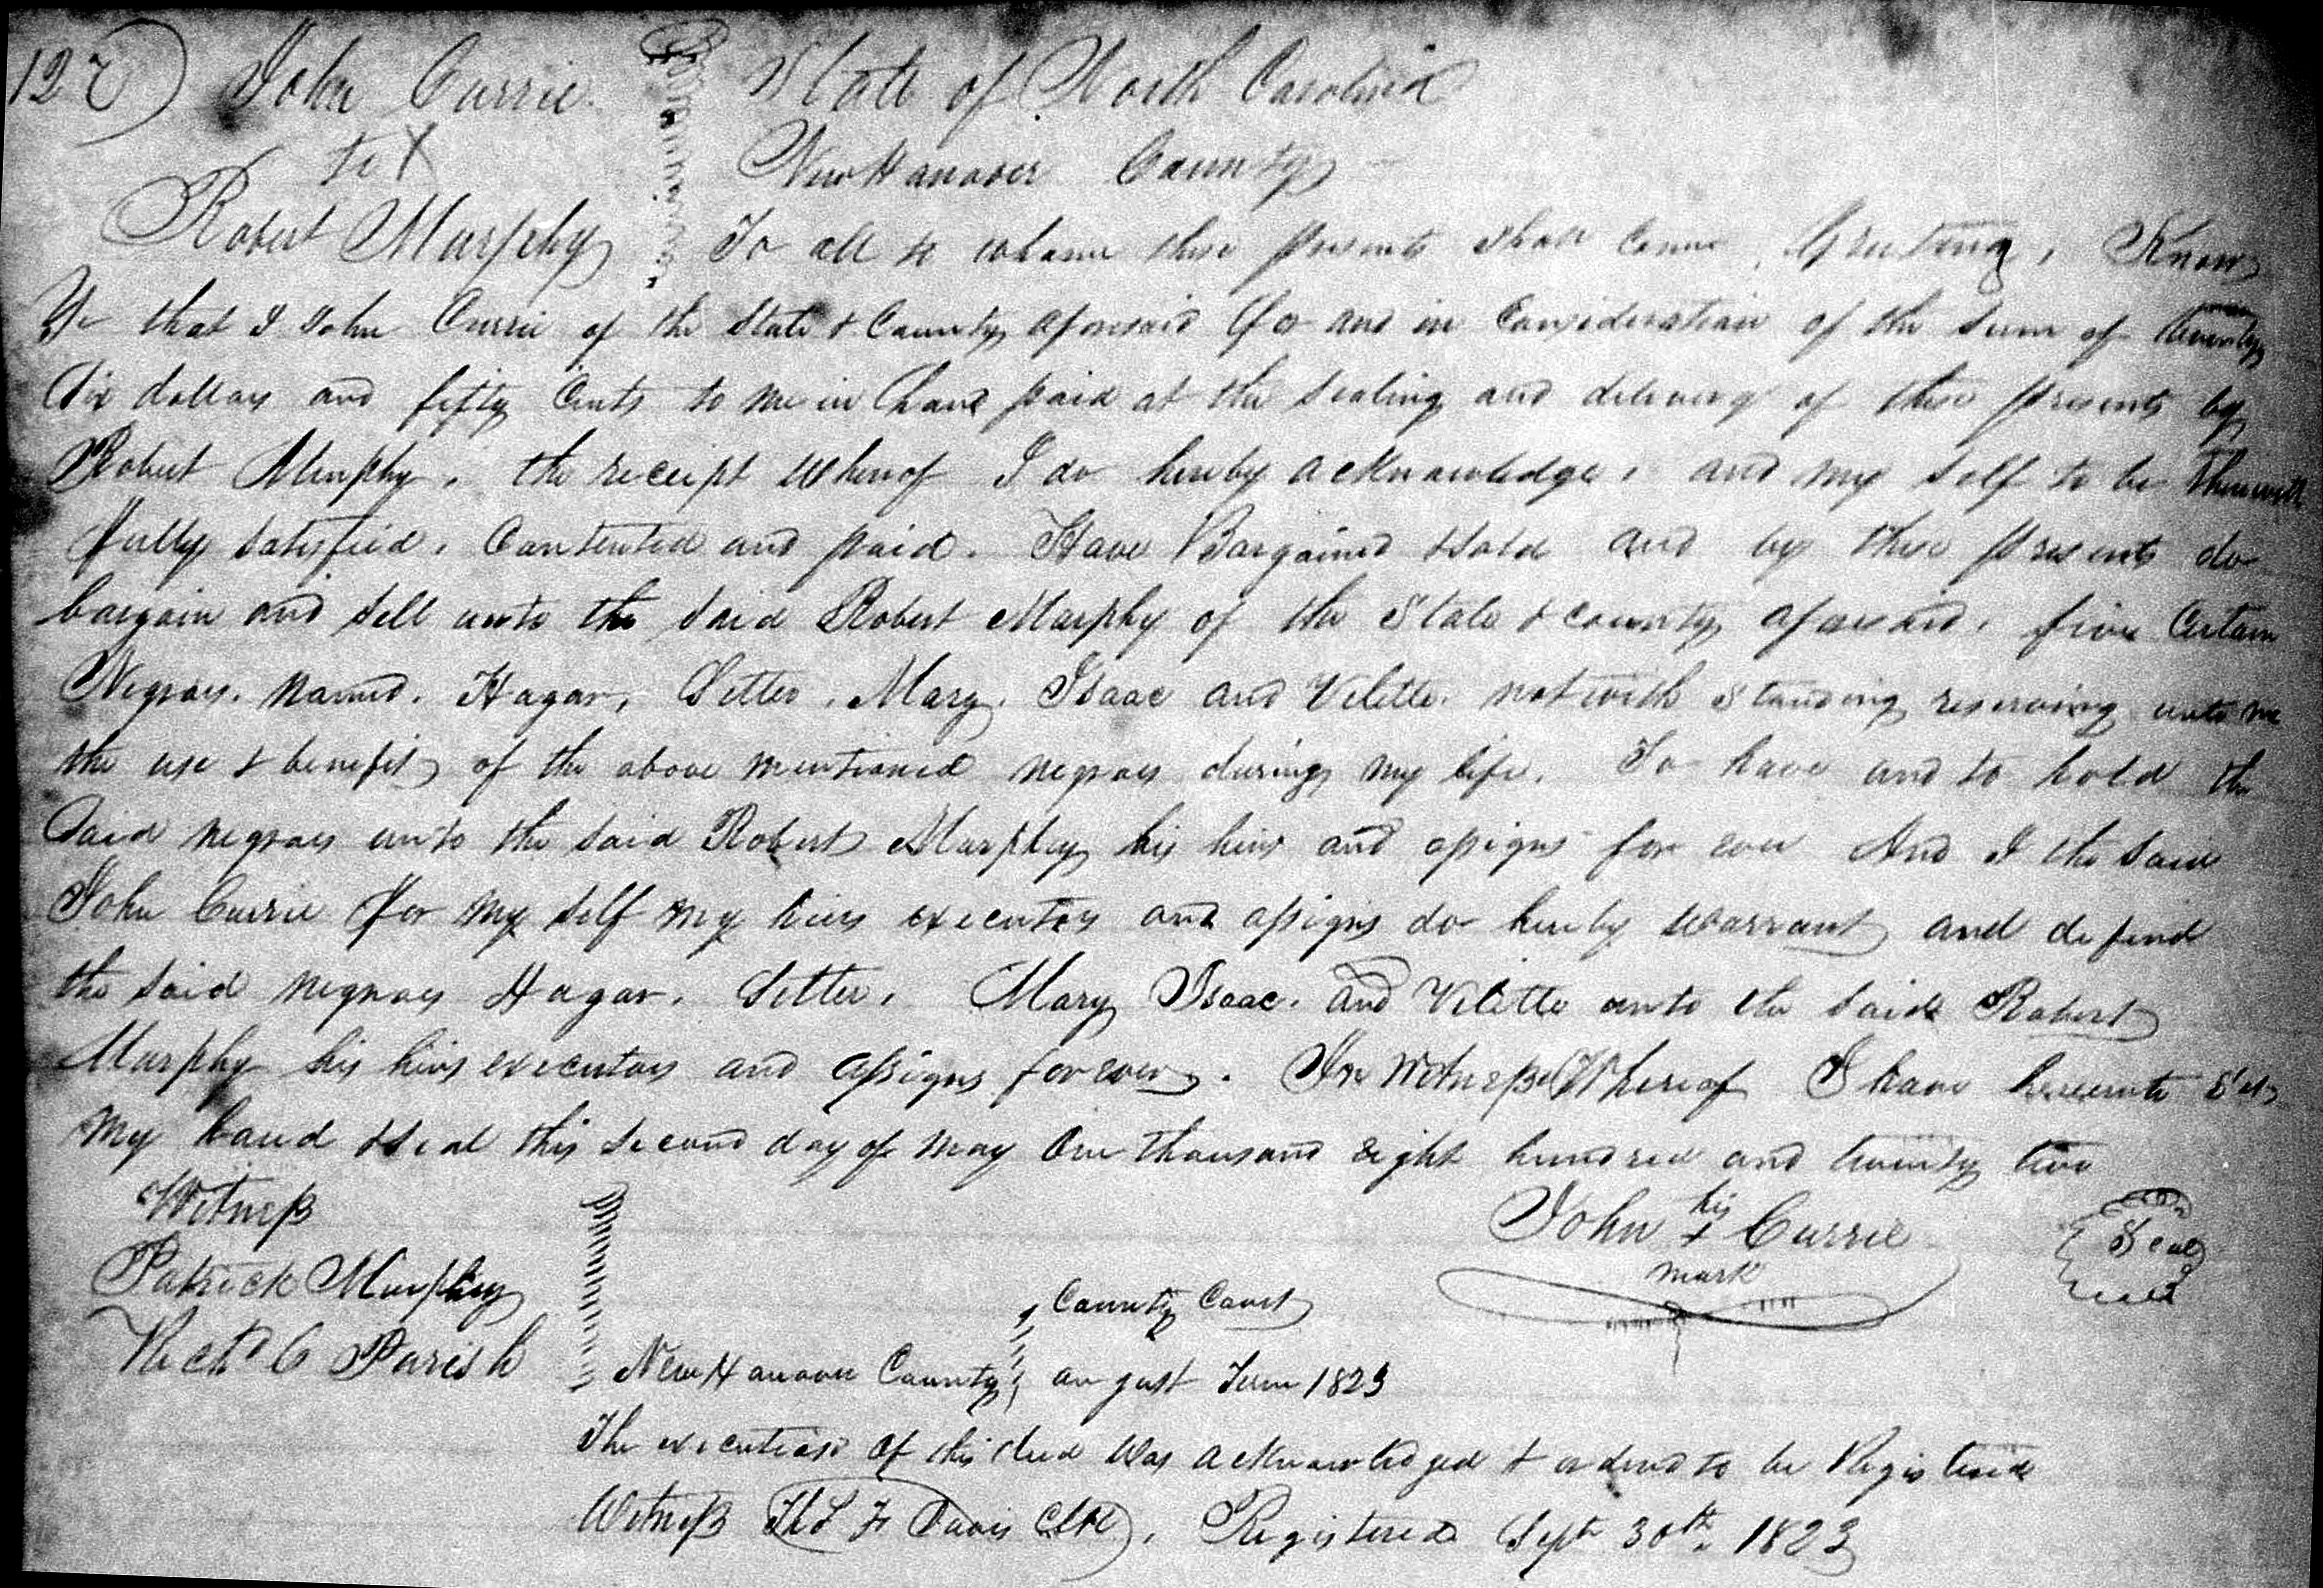 127) John Currie State of North Carolina
to X New Hanover County
Robert Murphy To all to whome these presents shall come, Greeting, Know
Ye that I John Currie of the State & County aforesaid for and in Consideration of the sum of twenty
Six dollars and fifty Cents to me in hand paid at the sealing and delivery of these presents by
Robert Murphy, the receipt whereof I do hereby acknowledge, and my self to be therewith
fully satisfied, Contented and paid. Have Bargained & sold and by these presents do
bargain and sell unto the said Robert Murphy of the State & county aforesaid, five Certain
Negroes. named. Hagar, Setter, Mary, Isaac and Vilette. notwith standing reserving unto me
the use & benefit of the above mentioned negroes during my life. To have and to hold the
Said negroes unto the said Robert Murphey his heirs and assigns for ever And I the said
John Currie for my self my heirs executors and assigns do hereby warrant and defend
the said negroes Hagar. Setter, Mary Isaac. and Vilette unto the said Robert
Murphy his heirs executors and assigns forever. In Witness Whereof I have hereunto Set
my hand & seal this second day of may One thousand eight hundred and twenty two
Witness John his + Currie Seal
mark
Patrick Murphey
Richd C Parish
County Court
New Hanover County august Term 1823
The execution of this deed was acknowledged & orderd to be Registered
Witness Thos F Davis Clk, Registered Sept 30th. 1823